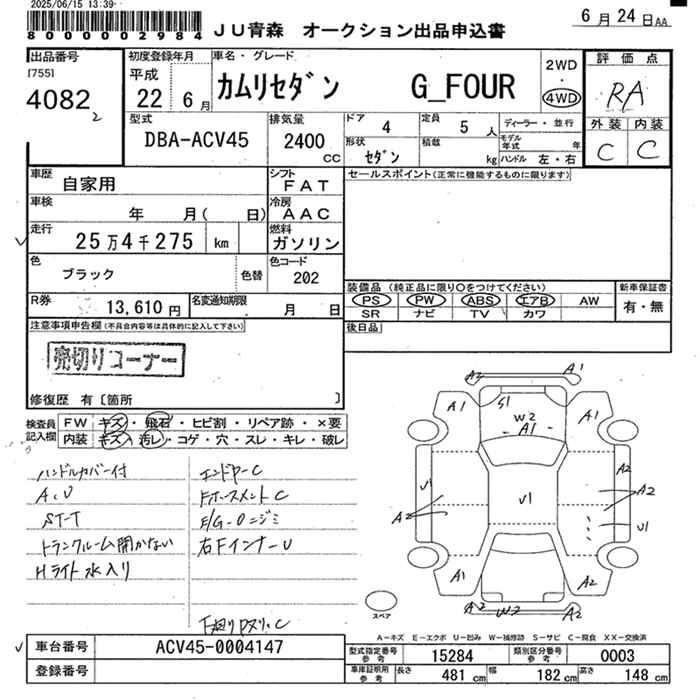 2025/06/15 13:39
8000002984
JU青森 オークション出品申込書
6月24日AA
出品番号
[755]
4082
2
初度登録年月
平成
22 6月
車名・グレード
カムリセダン G_FOUR
2WD
・
4WD
評価点
RA
外装 内装
C C
型式
DBA-ACV45
排気量
2400
CC
ドア
4
定員
5人
ディーラー・並行
形状
セダン
積載
kg
モデル年式 年
ハンドル 左・右
車歴
自家用
シフト
FAT
セールスポイント(正常に機能するものに限ります)
車検
年 月( 日)
冷房
AAC
走行
25万4千275 km
燃料
ガソリン
色
ブラック
色替
色コード
202
装備品(純正品に限り〇をつけてください)
PS PW ABS エアB AW
SR ナビ TV カワ
新車保証書
有・無
R券
13,610円
名変通知期限
月 日
後日品
注意事項申告欄(不具合内容等は具体的に記入して下さい)
売切りコーナー
修復歴 有〔箇所 〕
検査員記入欄
FW キズ・飛石・ヒビ割・リペア跡・×要
内装 キズ・汚レ・コゲ・穴・スレ・キレ・破レ
ハンドルカバー付
A.U
ST-T
トランクルーム開かない
Hライト水入り
エンドヤーC
FホースメントC
E/G-Oニジミ
右FインナーU
A2 A1
A1 S1 W2 A1 A1
U1 U1 A2
A2 A2
U1
A1 A2
A2 W2 A2
スペア
A-キズ E-エクボ U-凹み W-補修跡 S-サビ C-腐食 XX-交換済
車台番号
ACV45-0004147
登録番号
型式指定番号
参考
15284
類別区分番号
参考
0003
車庫証明用
参考
長さ 481 cm 幅 182 cm 高さ 148 cm